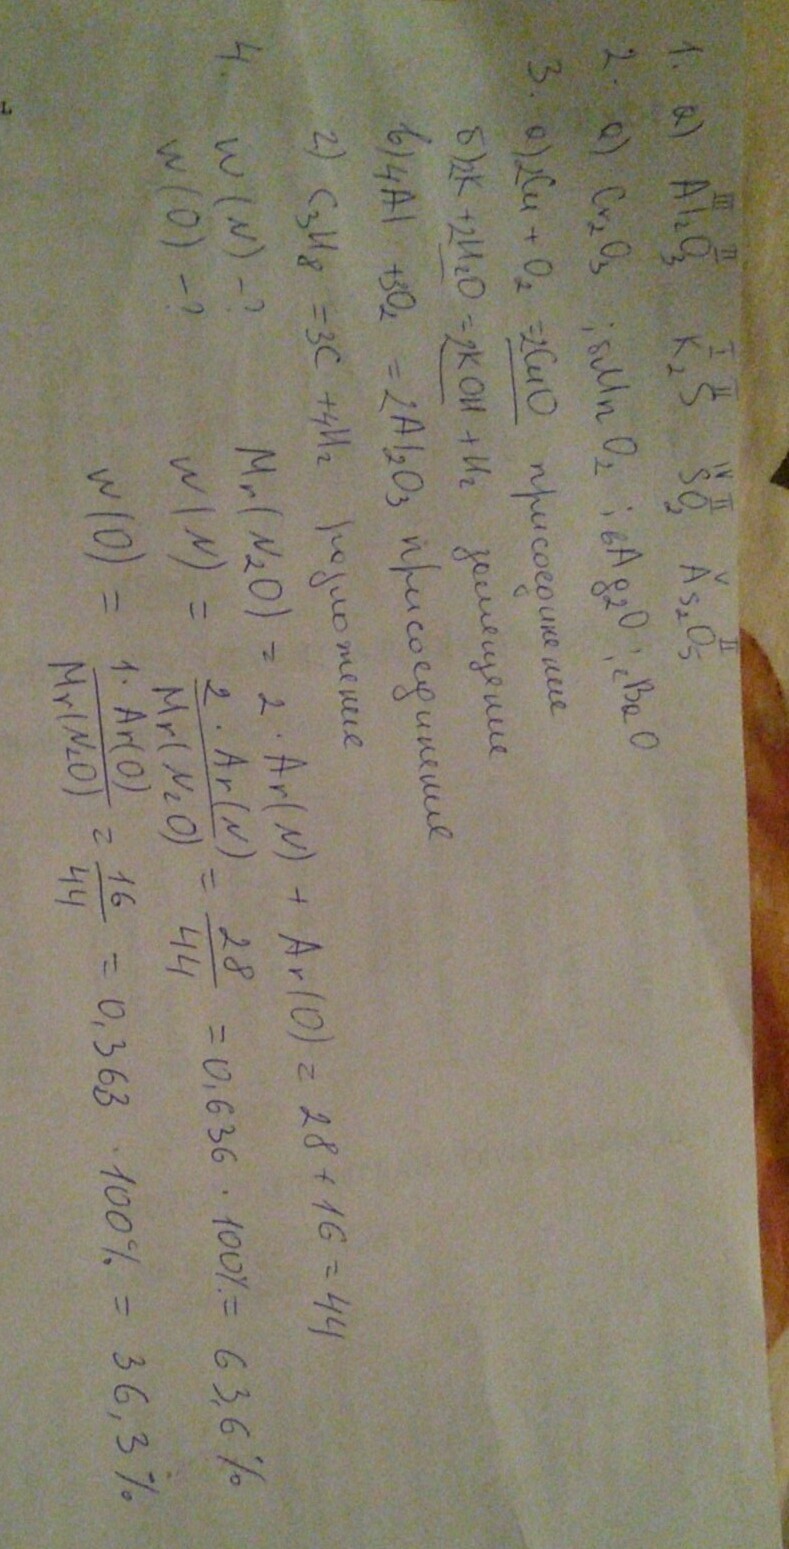 III II I II IV II V II
1. а) Al2O3 K2S SO2 As2O5
2. а) Cr2O3 ; б) MnO2 ; в) Ag2O ; г) BaO
3. а) 2Cu + O2 = 2CuO присоединение
б) 2K + 2H2O = 2KOH + H2 замещение
в) 4Al + 3O2 = 2Al2O3 присоединение
г) C3H8 = 3C + 4H2 разложение
4. W(N) - ? Mr(N2O) = 2 · Ar(N) + Ar(O) = 28 + 16 = 44
W(O) - ? W(N) = 2 · Ar(N) / Mr(N2O) = 28 / 44 = 0,636 · 100% = 63,6%
W(O) = 1 · Ar(O) / Mr(N2O) = 16 / 44 = 0,363 · 100% = 36,3%